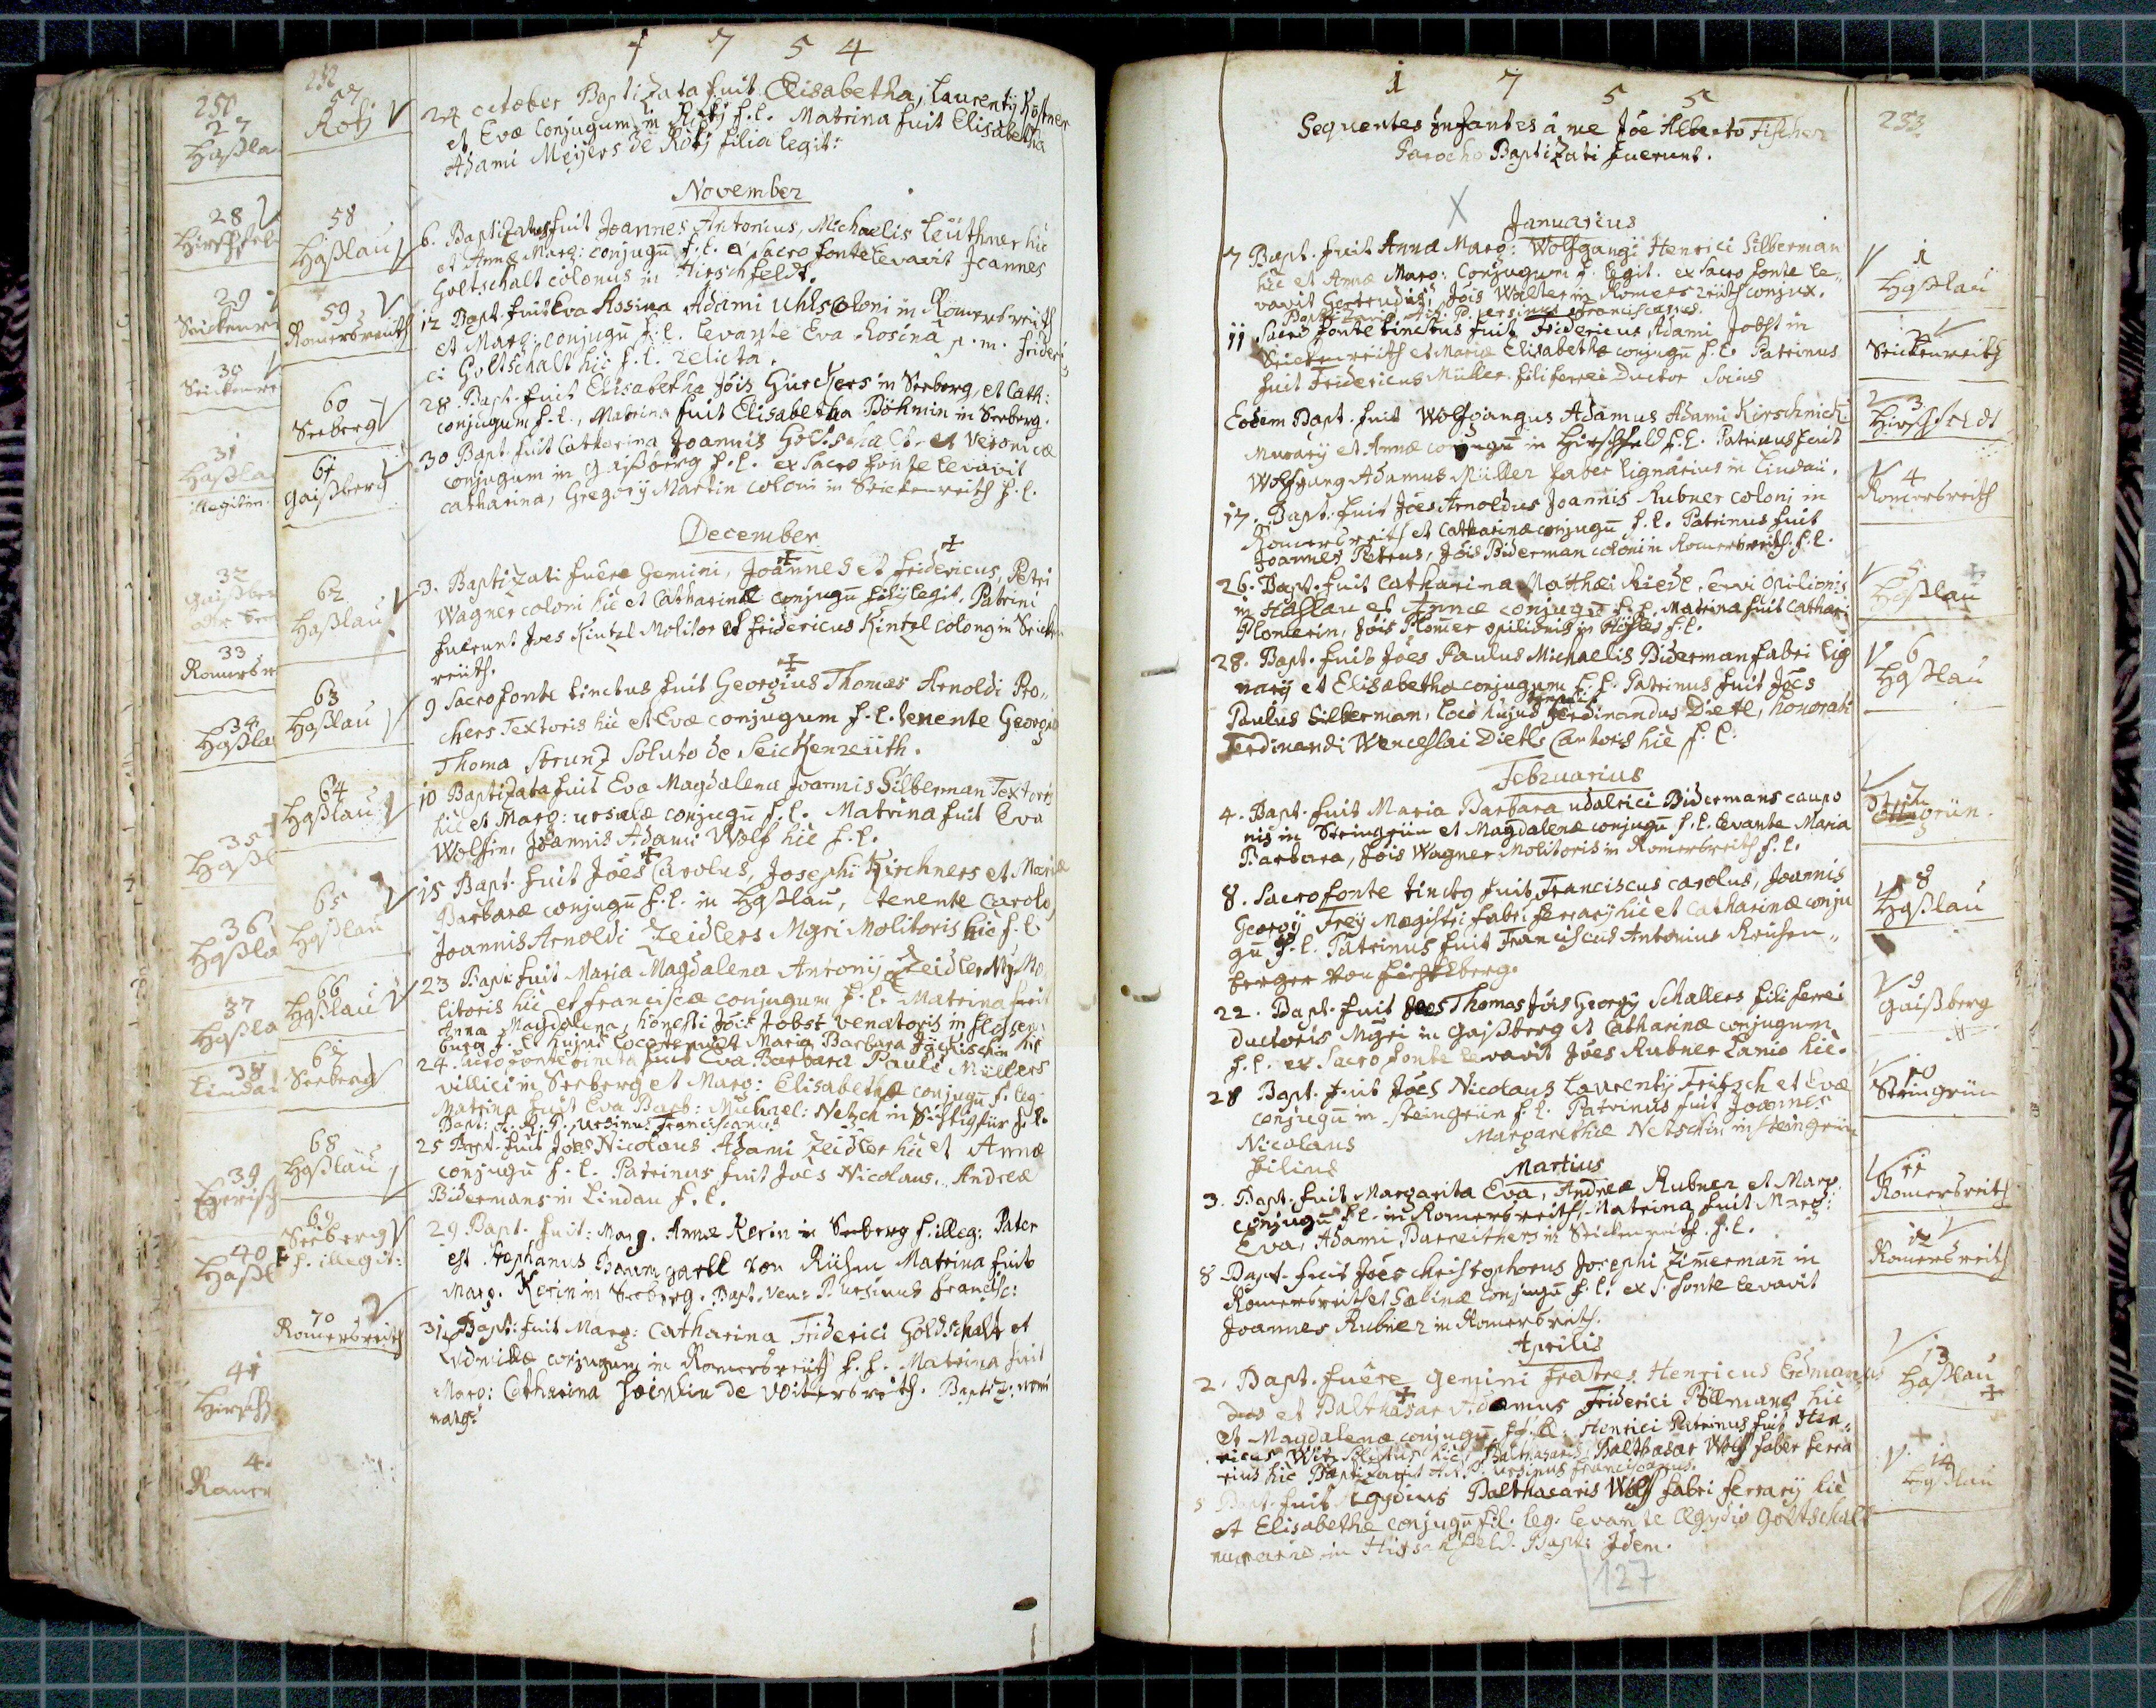 250
27
Haßla
28
Hirschfel
29
Seickenre
30
Seickenre
31
Haßla
illegitim:
32
Gaißber
33
Romersr
34
Haßla
35
Haßl
36
Haßla
37
Haßla
38
Linda
39
40
Haßl
41
Hirsch
4.
Romer
252
1 7 5 4
57
Roßj
24 october Baptizata fuit Elisabetha, Laurentÿ Köstner
et Evæ Conjugum in Roßj f. l. Matrina fuit Elisabetha
Adami Meÿers de Roßj filia legit:
November
58
Haßlau
6. Baptizatus fuit Joannes Antonius, Michaelis Leüthner hic
et Annæ Marg: conjugū f. l. a sacro fonte levavit Joannes
Goltschalt colonus in Hirschfeldt.
59
Romersreith
12 Bapt. fuit Eva Rosina Adami Uhls Coloni in Romersreith
et Marg: conjugū f. l. levante Eva Rosina p. m. frideri
ci Goltschalt hic f. l. relicta.
60
Seeberg
28. Bapt. fuit Elisabetha Jois Gürckers in Seeberg, et Cath:
conjugum f. l., Matrina fuit Elisabetha Böhmin in Seeberg.
61
Gaißberg
30 Bapt. fuit Catharina Joannis Goltschalt et Veronicæ
conjugum in Gaißberg f. l. ex Sacro fonte levavit
Catharina, Gregorÿ Martin coloni in Seickenreith f. l.
December
62
Haßlau
3. Baptizati fuêre Gemini, Joannes et fridericus, Petri
Wagner coloni hic et Catharinæ conjugū filÿ legit. Patrini
fuerunt Joes Küntzl Molitor et fridericus Küntzl colonq in Seicken
reüth.
63
Haßlau
9 Sacro fonte tinctus fuit Georgius Thomas Arnoldi Pro-
chers Textoris hic et Evæ conjugum f. l. tenente Georgio
Thoma Strunz Soluto de Seickenreüth.
64
Haßlau
10 Baptizata fuit Eva Magdalena Joannis Silberman Textoris
hic et Marg: ursulæ conjugū f. l. Matrina fuit Eva
Wolfin, Joannis Adami Wolf hic f. l.
65
Haßlau
15 Bapt. fuit Joes Carolus, Josephi Kirchners et Mariæ
Barbaræ conjugū f. l. in Haßlau, tenente Carolo,
Joannis Arnoldi Zeidlers Mgri Molitoris hic f. l.
66
Haßlau
23 Bapt. fuit Maria Magdalena Antonÿ Zeidler Mg: Mo
litoris hic et franciscæ conjugum f. l. Matrina fuit
Anna Magdalena, honesti Jois Jobst venatoris in
burg f. l. hujus loco tenuit Maria Barbara hic
67
Seeberg
24. Sacro fonte tincta fuit Eva Barbara Pauli Müllers
villici in Seeberg et Marg: Elisabethæ conjugū f. leg.
Matrina fuit Eva Barb: Michael: Netsch in f. l.
Bapt: A. R. P. Ursinus franciscanus
68
Haßlau
25 Bapt. fuit Joes Nicolaus Adami Zeidler hic et Annæ
conjugū f. l. Patrinus fuit Joes Nicolaus, Andreæ
Bidermans in Lindau f. l.
69
Seeberg
f. illegit:
29 Bapt. fuit: Marg. Annæ Kerin in Seeberg f. illeg: Pater
est Stephanus Baumgartl von Matrina fuit
Marg. Kerin in Seeberg. Bapt. Ven: P. Ursinus francisc:
70
Romersreith
31 Bapt: fuit Marg: Catharina Friderici Goldschalt et
Ludmillæ conjugum in Romersreüth f. l. Matrina fuit
Marg: Catharina de Voitersreith. Baptiz: nomi
marg:
1 7 5 5
253
Sequentes Infantes à me Joe Alberto Fischer
Parocho Baptizati fuerunt.
X
Januarius
7 Bapt. fuit Anna Marg: Wolfgangi Henrici Silberman
hic et Annæ Marg: Conjugum f. legit. ex Sacro fonte le-
vavit Gertrudis, Jois Walter in Romersreüth conjux.
1
Haßlau
Baptizavit A. R. P. Ursinus Franciscanus.
11 Sacro fonte tinctus fuit Fridericus Adami Jobst in
Seickenreith et Mariæ Elisabethæ conjugū f. l. Patrinus
fuit Fridericus Müller fili ferrei Ductor Socius
2
Seickenreith
Eodem Bapt. fuit Wolfgangus Adamus Adami Kirschnick
Murarÿ et Annæ conjugū in Hirschfeld f. l. Patrinus fuit
Wolfgang Adamus Müller faber lignarius in Lindau.
3
Hirschfeldt
17. Bapt. fuit Joes Arnoldus Joannis Rubner colonj in
Romersreith et Catharinæ conjugū f. l. Patrinus fuit
Joannes Petrus, Jois Biderman coloni in Romersreith f. l.
4
Romersreith
26. Bapt. fuit Catharina Mathæi Riedl servi opilionis
in Haslau et Annæ conjugū f. l. Matrina fuit Cathari
Plomerin, Jois Plomer opilionis in f. l.
5
Haßlau
28. Bapt. fuit Joes Paulus Michaelis Biderman fabri lig
narÿ et Elisabethæ conjugum f. l. Patrinus fuit Joes
Paulus Silberman, loco hujus Ferdinandus Dietl, honorati
Ferdinandi Wenceslai Dietls Cantoris hic f. l.
6
Haßlau
Februarius
4. Bapt. fuit Maria Barbara udalrici Bidermans caupo
nis in Steingrün et Magdalenæ conjugū f. l. levante Maria
Barbara, Jois Wagner Molitoris in Romersreith f. l.
7
Steingrün.
8. Sacro fonte tinctq fuit Franciscus Carolus, Joannis
Georgÿ Freÿ Magistri fabri ferrarÿ hic et Catharinæ conju
gū f. l. Patrinus fuit Franciscus Antonius Reisen-
berger von
8
Haßlau
22. Bapt. fuit Joes Thomas Jois Georgÿ Schallers fili ferrei
ductoris Mgri in Gaißberg et Catharinæ conjugum
f. l. ex Sacro fonte levavit Joes Rubner Lanio hic.
9
Gaißberg
28 Bapt. fuit Joes Nicolaus Laurentÿ Fritsch et Evæ
conjugū in Steingrün f. l. Patrinus fuit Joannes
Nicolaus Margarethæ Netschin in Steingrün
filius
10
Steingrün
Martius
3. Bapt. fuit Margarita Eva, Andreæ Rubner et Marg.
conjugū f. l. in Romersreith, Matrina fuit Marg:
Eva, Adami Barreithers in Seickenreith f. l.
11
Romersreith
8 Bapt. fuit Joes Christophorus Josephi Zimerman̄ in
Romersreith et Sabinæ conjugū f. l. ex s. fonte levavit
Joannes Rubner in Romersreith.
12
Romersreith
Aprilis
2. Bapt. fuêre gemini fratres Henricus Edmun
dus et Balthasar Adamus Friderici Pöllmans hic
et Magdalenæ conjugū f. l. Henrici Patrinus fuit Hen-
ricus Solutus hic, Balthasaris Balthasar Wolf faber ferra
rius hic Baptizavit A. R. P. Ursinus Franciscanus.
13
Haßlau
5 Bapt. fuit Ægydius Balthasaris Wolf fabri ferrarÿ hic
et Elisabethe conjugū fil. leg. levante Ægydio Goltschalt
murario in Hirschfeld. Bapt: Idem.
14
Haßlau
127